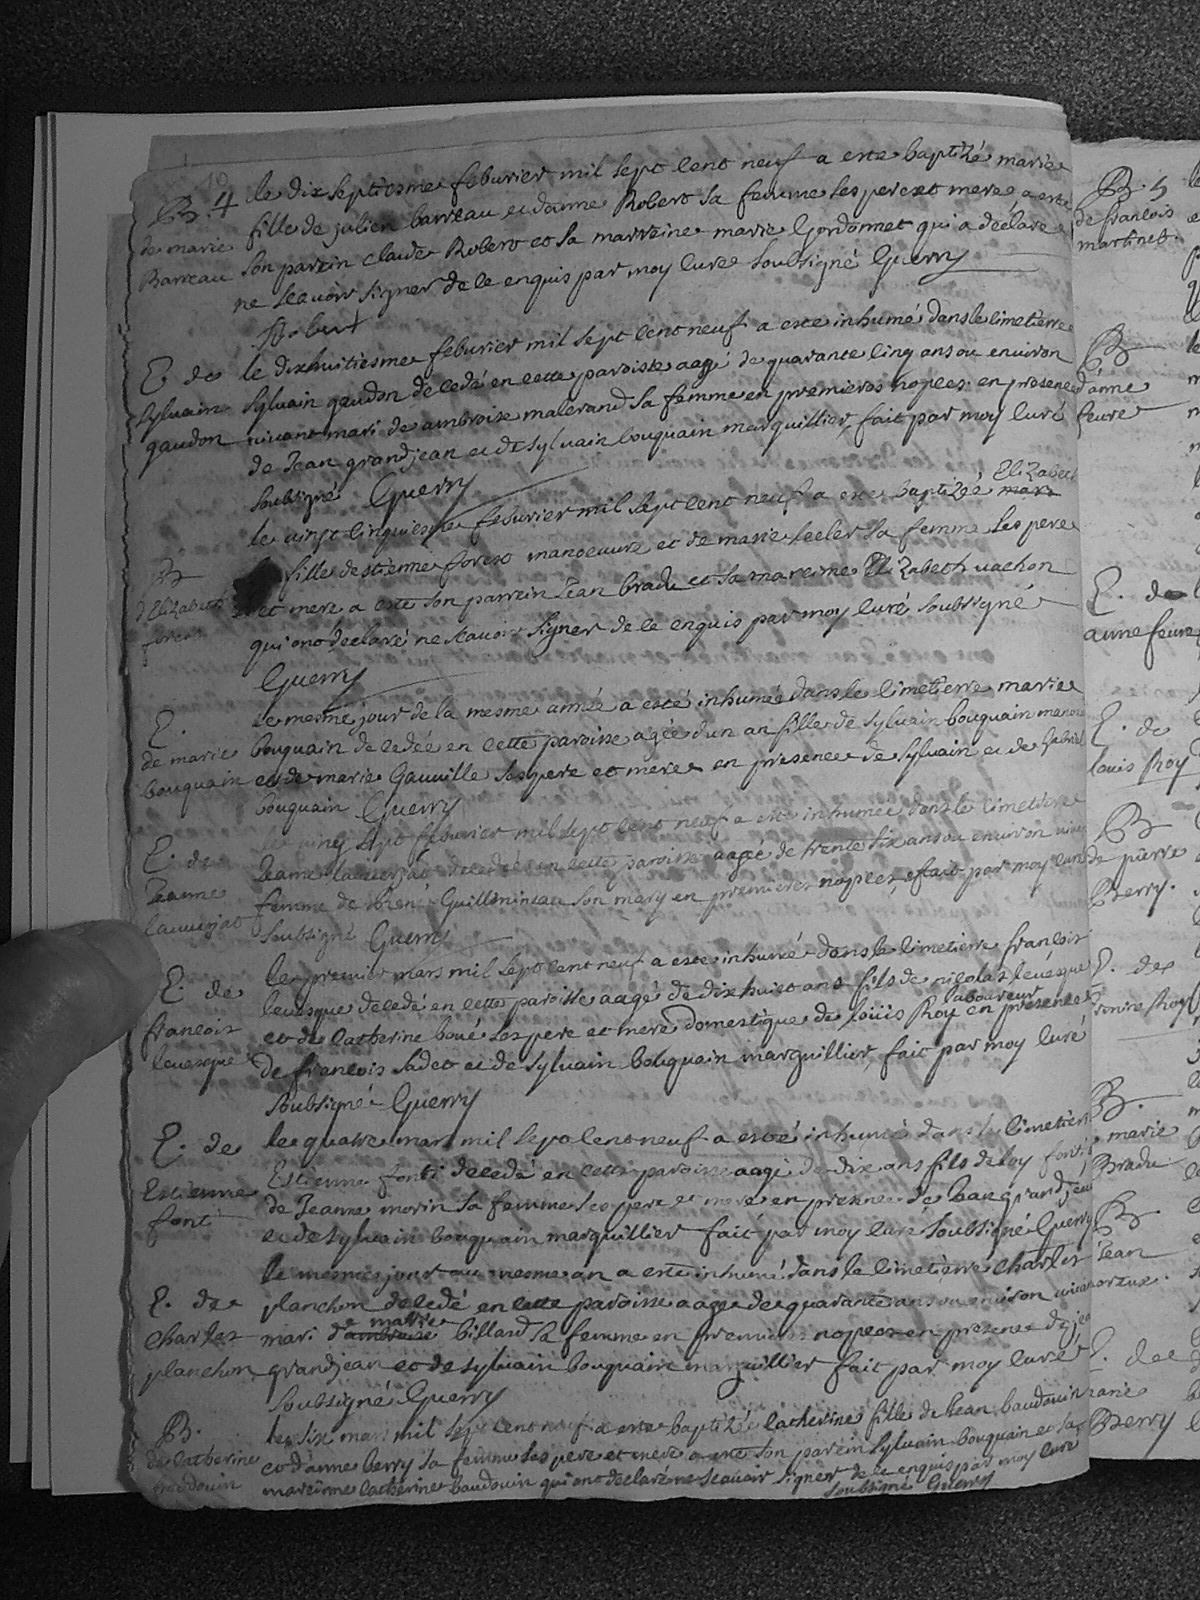 B. 4
de marie
Barreau
le dix septiesme feburier mil sept cent neuf a este baptizé marie
fille de julien barreau et danne Robert sa femme ses pere et mere a este
son parein claude Robert et sa marreine marie Gordonnet qui a déclaré
ne scauoir signer de ce enquis par moy curé soubsigné Guerry
Robert
E. de
sylvain
gaudon
le dixhuitiesme feburier mil sept cent neuf a este inhumé dans le cimetierre
sylvain gaudon decedé en cette paroisse aagé de quarante cinq ans ou enuiron
uiuant mari de ambroise malerand sa femme en premieres nopces en presence
de Jean grandjean et de sylvain bouquain marguillier, fait par moy curé
soubsigné Guerry
B
d'Elizabeth
forest
le uingt cinquiesme feburier mil sept cent neuf a este baptizée Elizabeth
fille destienne forest manoeuure et de marie lecler sa femme ses pere
et mere a este son parrein Jean bradu et sa mareine Elizabeth uachon
qui ont declaré ne scauoir signer de ce enquis par moy curé soubsigné
Guerry
E.
de marie
bouquain
le mesme jour de la mesme année a esté inhumée dans le cimetierre marie
bouquain decedée en cette paroisse agée dun an fille de sylvain bouquain
et de marie Gauuille ses pere et mere en presence de sylvain et de Gabriel
bouquain Guerry
E. de
Jeanne
le uing sept feburier mil sept cent neuf a este inhumée dans le cimetierre
Jeanne decedée en cette paroisse aagée de trente six ans ou enuiron
femme de René Guillemineau son mary en premieres nopces, fait par moy curé
soubsigné Guerry
E. de
francois
leuesque
le premier mars mil sept cent neuf a este inhumé dans le cimetierre francois
leuesque decedé en cette paroisse aagé de dix huict ans fils de nicolas leuesque
et de Catherine boué ses pere et mere domestique de loüis Roy laboureur en presence
de francois sadet et de sylvain bouquain marguillier, fait par moy curé
soubsigné Guerry
E. de
Estienne
font
le quatre mars mil sept cent neuf a esté inhumé dans le cimetierre
Estienne font decedé en cette paroisse aagé de dix ans fils de
de Jeanne morin sa femme ses pere et mere en presence de Jean grandjean
et de sylvain bouquain marguillier fait par moy curé soubsigné Guerry
E. de
charles
planchon
le mesme jour au mesme an a este inhumé dans le cimetierre charles
planchon decedé en cette paroisse aagé de quarante ans ou enuiron uiuant
mari de marie billard sa femme en premieres nopces en presence de
grandjean et de sylvain bouquain marguillier fait par moy curé
soubsigné Guerry
B.
de Catherine
baudouin
le six mars mil sept cent neuf a este baptizé catherine fille de Jean baudouin
et d'anne berry sa femme ses pere et mere a este son parein sylvain bouquain et sa
mareinne catherine baudouin qui ont declaré ne scauoir signer de ce enquis par moy curé
soubsigné Guerry
B. 5
de francois
martinet
B
d'anne
feure
E. de
anne feure
E. de
louis Roy
B
de pierre
Berry.
E. de
Roy
B.
marie
Bradu
B.
Jean
E. de
Berry